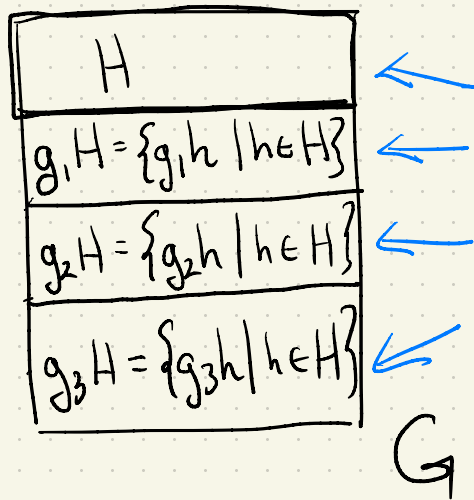 H
g₁H = {g₁h | h ∈ H}
g₂H = {g₂h | h ∈ H}
g₃H = {g₃h | h ∈ H}
G